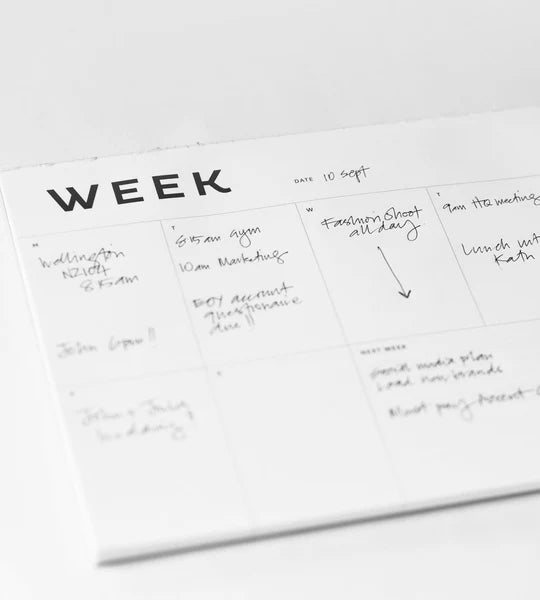 WEEK
DATE 10 Sept
M
Wellington
8:15am
John 6pm!!
T
8:15am gym
10am Marketing
BOY account
questionaire
due!!
W
Fashion Shoot
all day
T
9am HQ meeting
Lunch wit
Kath
S
John &
wedding
S
NEXT WEEK
Social media plan
Load non brands
Must pay